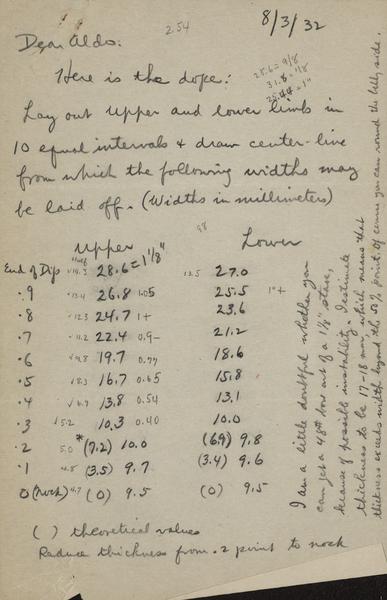 8/3/32
2.54
Dear Aldo:
28.6 = 9/8
31.8 = 1/8
25.44 = 1"
Here is the dope:
Lay out upper and lower limbs in
10 equal intervals & draw center-line
from which the following widths may
be laid off. (Widths in millimeters)
Upper Lower
half
End of Dips 14.3 28.6 = 1 1/8" 27.0
.9 13.4 26.8 1.05 25.5 1"+
.8 12.3 24.7 1+ 23.6
.7 11.2 22.4 0.9- 21.2
.6 9.8 19.7 0.77 18.6
.5 8.3 16.7 0.65 15.8
.4 6.9 13.8 0.54 13.1
.3 5.2 10.3 0.40 10.0
.2 5.0 *(7.2) 10.0 (6.9) 9.8
.1 4.8 (3.5) 9.7 (3.4) 9.6
0 (nock) 4.7 (0) 9.5 (0) 9.5
( ) theoretical values
Reduce thickness from .2 point to nock
I am a little doubtful whether you
can get a 48# bow out of a 1 1/8" stave,
because of possible instability. I estimate
thickness to be 17-18 mm, which means that
thickness exceeds width beyond the .5 point. Of course you can round the belly side.